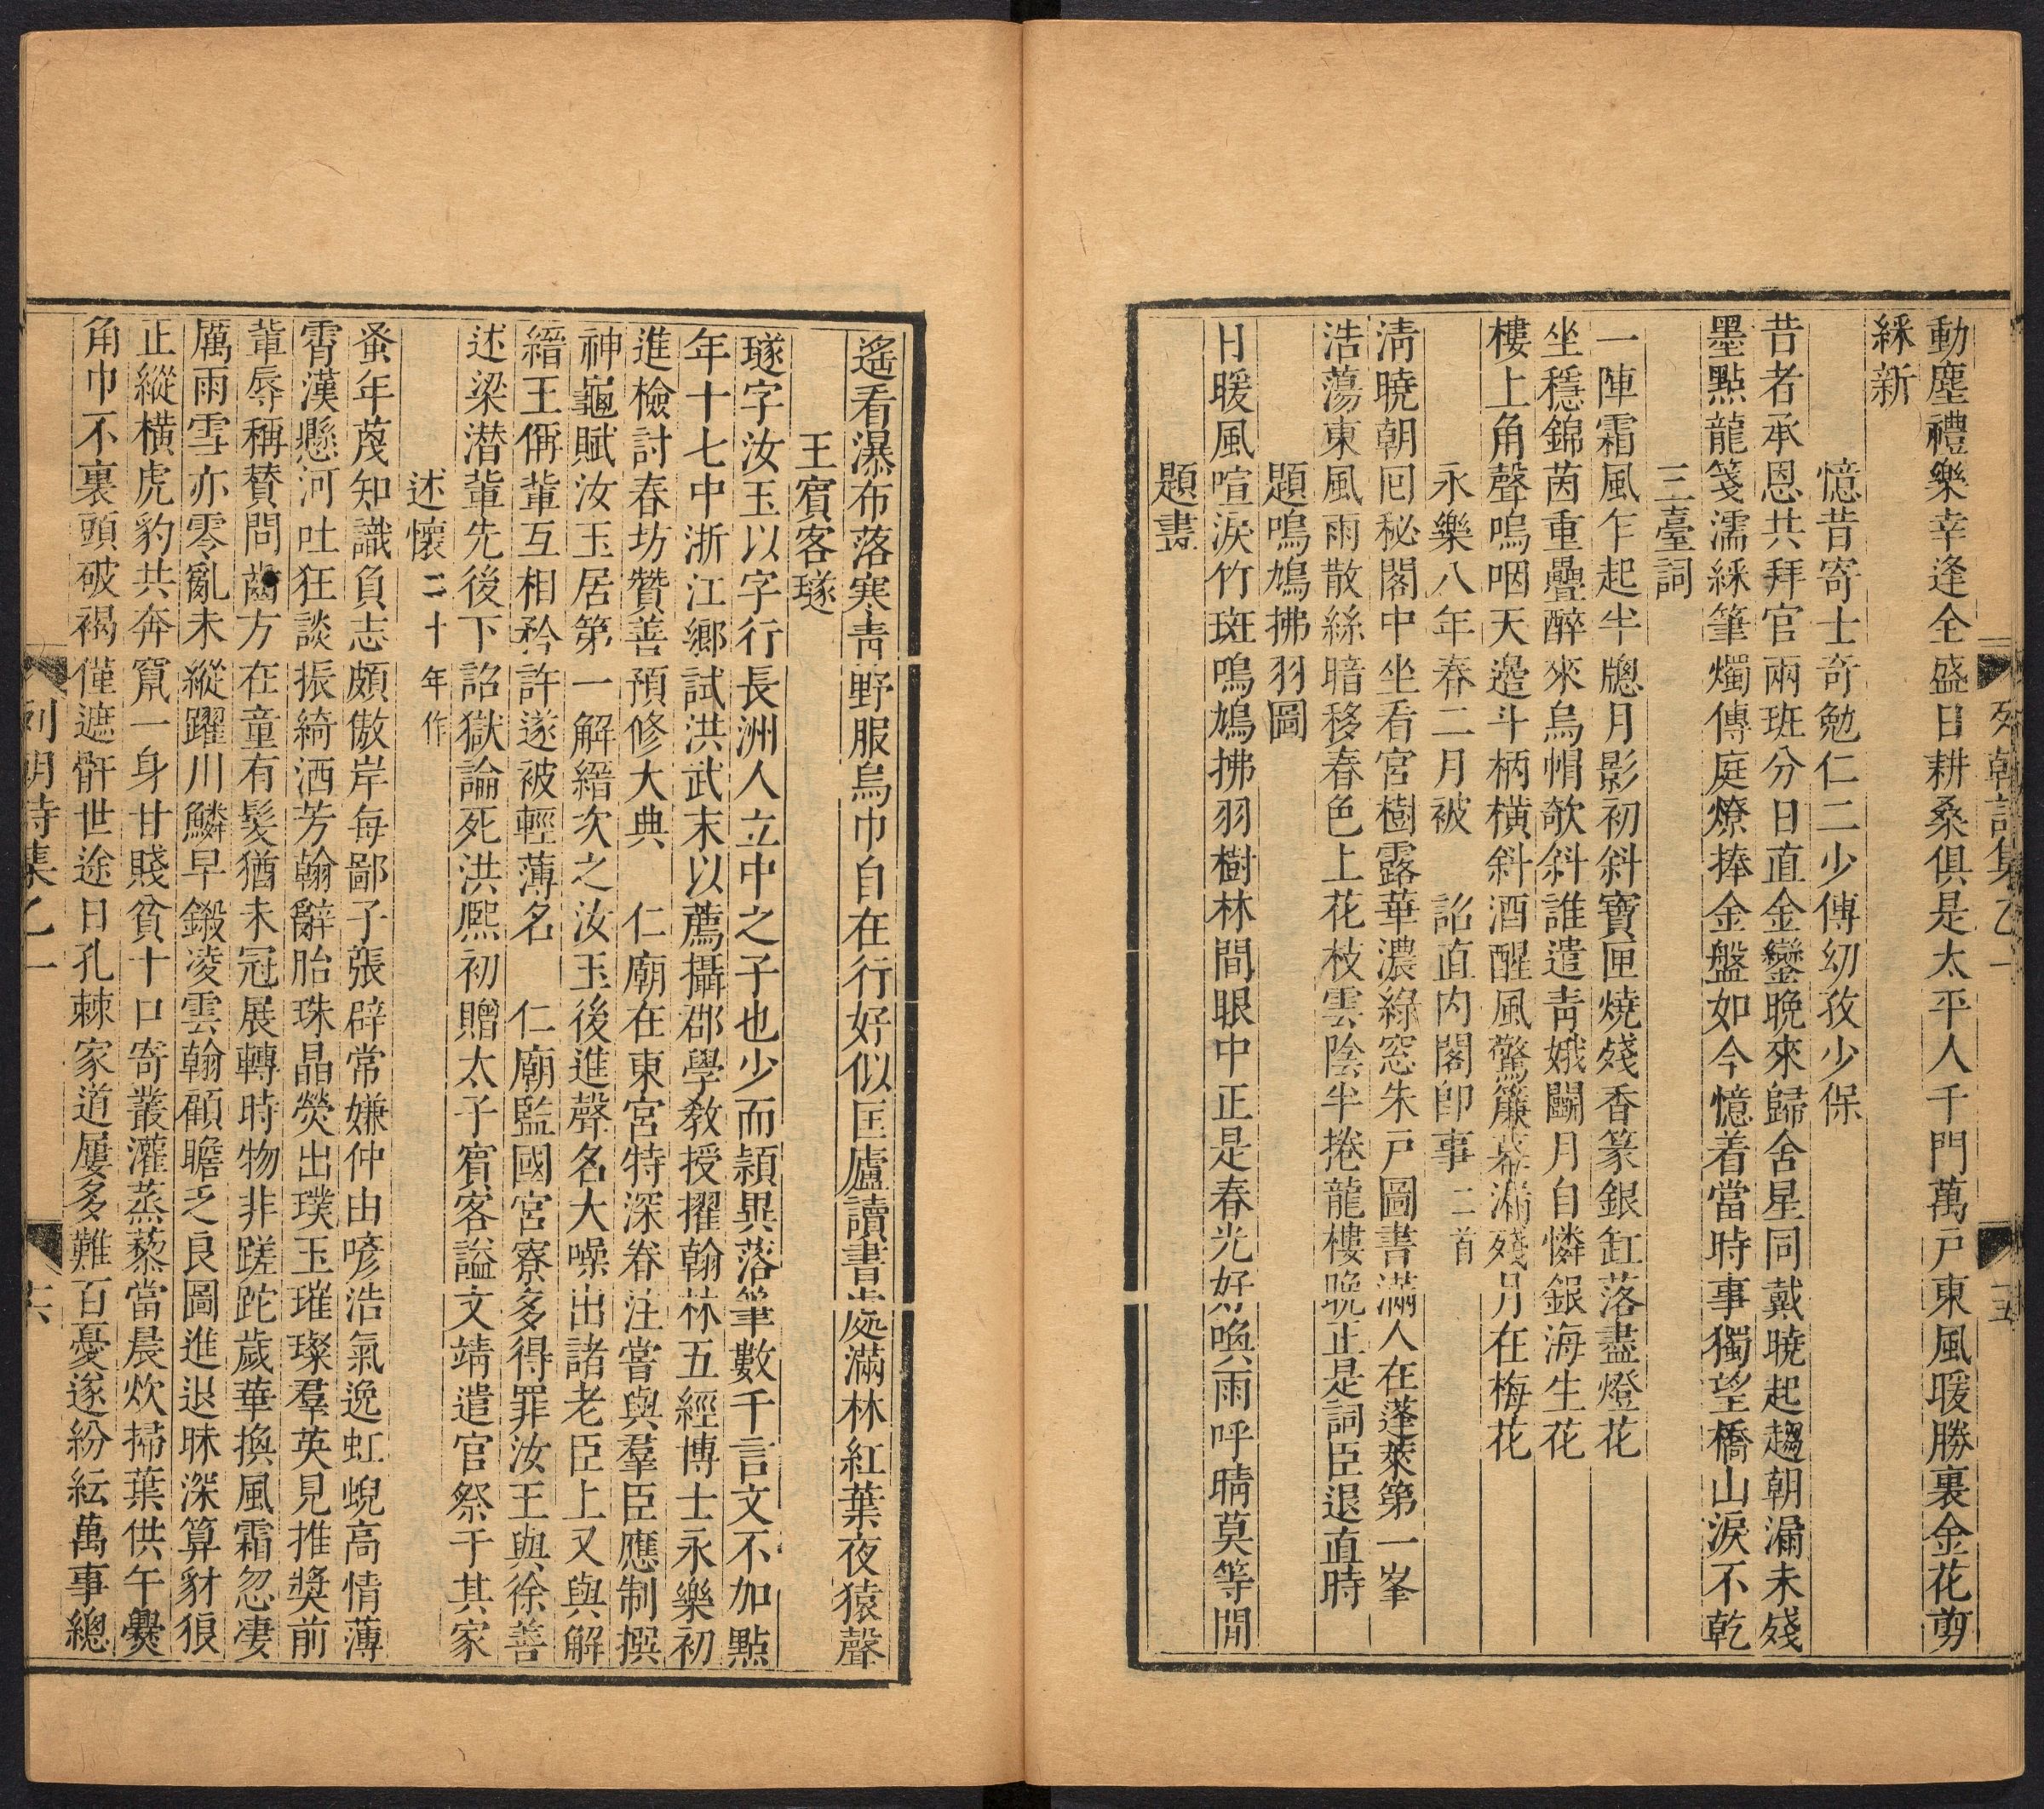 動塵禮樂幸逢全盛日耕桑俱是太平人千門萬戸東風暖勝裏金花剪
綵新
憶昔寄士奇勉仁二少傅幼孜少保
昔者承恩共拜官兩班分日直金鑾晚來歸舍星同戴曉起趨朝漏未殘
墨點龍箋濡綵筆燭傳庭燎捧金盤如今憶着當時事獨望橋山淚不乾
三臺詞
一陣霜風乍起半牕月影初斜寶匣燒殘香篆銀缸落盡燈花
坐穩錦茵重疊醉來烏帽欹斜誰遣青娥鬭月自憐銀海生花
樓上角聲嗚咽天邊斗柄橫斜酒醒風驚簾幕漏殘月在梅花
永樂八年春二月被 詔直內閣卽事二首
清曉朝回秘閣中坐看宮樹露華濃綠窓朱戸圖書滿人在蓬萊第一峯
浩蕩東風雨散絲暗移春色上花枝雲陰半捲龍樓晚正是詞臣退直時
題鳴鳩拂羽圖
日暖風喧淚竹斑鳴鳩拂羽樹林間眼中正是春光好喚雨呼晴莫等閒
題畫
列朝詩集乙一 十五
遙看瀑布落寒青野服烏巾自在行好似匡廬讀書處滿林紅葉夜猿聲
王賓客璲
璲字汝玉以字行長洲人立中之子也少而穎異落筆數千言文不加點
年十七中浙江鄉試洪武末以薦攝郡學教授擢翰林五經博士永樂初
進檢討春坊贊善預修大典 仁廟在東宮特深眷注嘗與羣臣應制撰
神龜賦汝玉居第一解縉次之汝玉後進聲名大噪出諸老臣上又與解
縉王偁輩互相矜許遂被輕薄名 仁廟監國宮寮多得罪汝玉與徐善
述梁潛輩先後下詔獄論死洪熙初贈太子賓客謚文靖遣官祭于其家
述懷二十年作
蚤年茂知識負志頗傲岸每鄙子張辟常嫌仲由喭浩氣逸虹蜺高情薄
霄漢懸河吐狂談振綺洒芳翰辭胎珠晶熒出璞玉璀璨羣英見推奬前
輩辱稱贊問齒方在童有髮猶未冠展轉時物非蹉跎歲華換風霜忽凄
厲雨雪亦零亂未縱躍川鱗早鎩凌雲翰顧瞻乏良圖進退昧深算豺狼
正縱橫虎豹共奔竄一身甘賤貧十口寄叢灌蒸藜當晨炊掃葉供午爨
角巾不裹頭破褐僅遮骭世途日孔棘家道屢多難百憂遂紛紜萬事總
列朝詩集乙一 十六